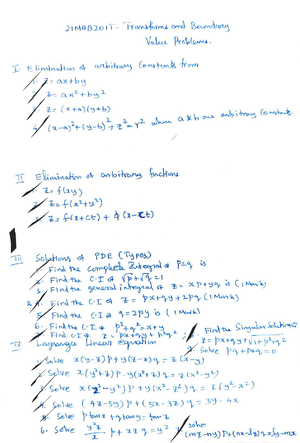 21MAB201T - Transforms and Boundary
Value Problems.
I. Elimination of arbitrary constants from
1. z = ax+by
2. z = ax²+by²
3. z = (x+a)(y+b)
4. (x-a)²+(y-b)²+z² = r² where a & b are arbitrary constants.
II Elimination of arbitrary functions
1. z = f(xy)
2. z = f(x²+y²)
3. z = f(x+ct) + φ(x-ct)
III Solutions of PDE (Types)
1. Find the complete integral of p=q is
2. Find the C.I of √p+√q=1
3. Find the general integral of z = xp+yq is (1 Mark)
4. Find the C.I of z = px+qy+2pq (1 Mark)
5. Find the C.I of q=2py is (1 Mark)
6. Find the C.I p²+q²=x+y
7. Find C.I of z = px+qy+p²q²
8. Find the Singular Solution of
z = px+qy+√1+p²+q²
9. Solve pq+p+q=0
IV Lagrange's Linear equation
1. Solve x(y-z)p+y(z-x)q = z(x-y)
2. Solve x(y²+z)p-y(x²+z)q = z(x²-y²)
3. Solve x(z²-y²)p+y(x²-z²)q = z(y²-x²)
4. Solve (4z-5y)p+(5x-3z)q = 3y-4x
5. Solve p tanx+q tany = tanz
6. Solve y²z/x p+xzq = y²
7. Solve
(mz-ny)p+(nx-lz)q=ly-mx